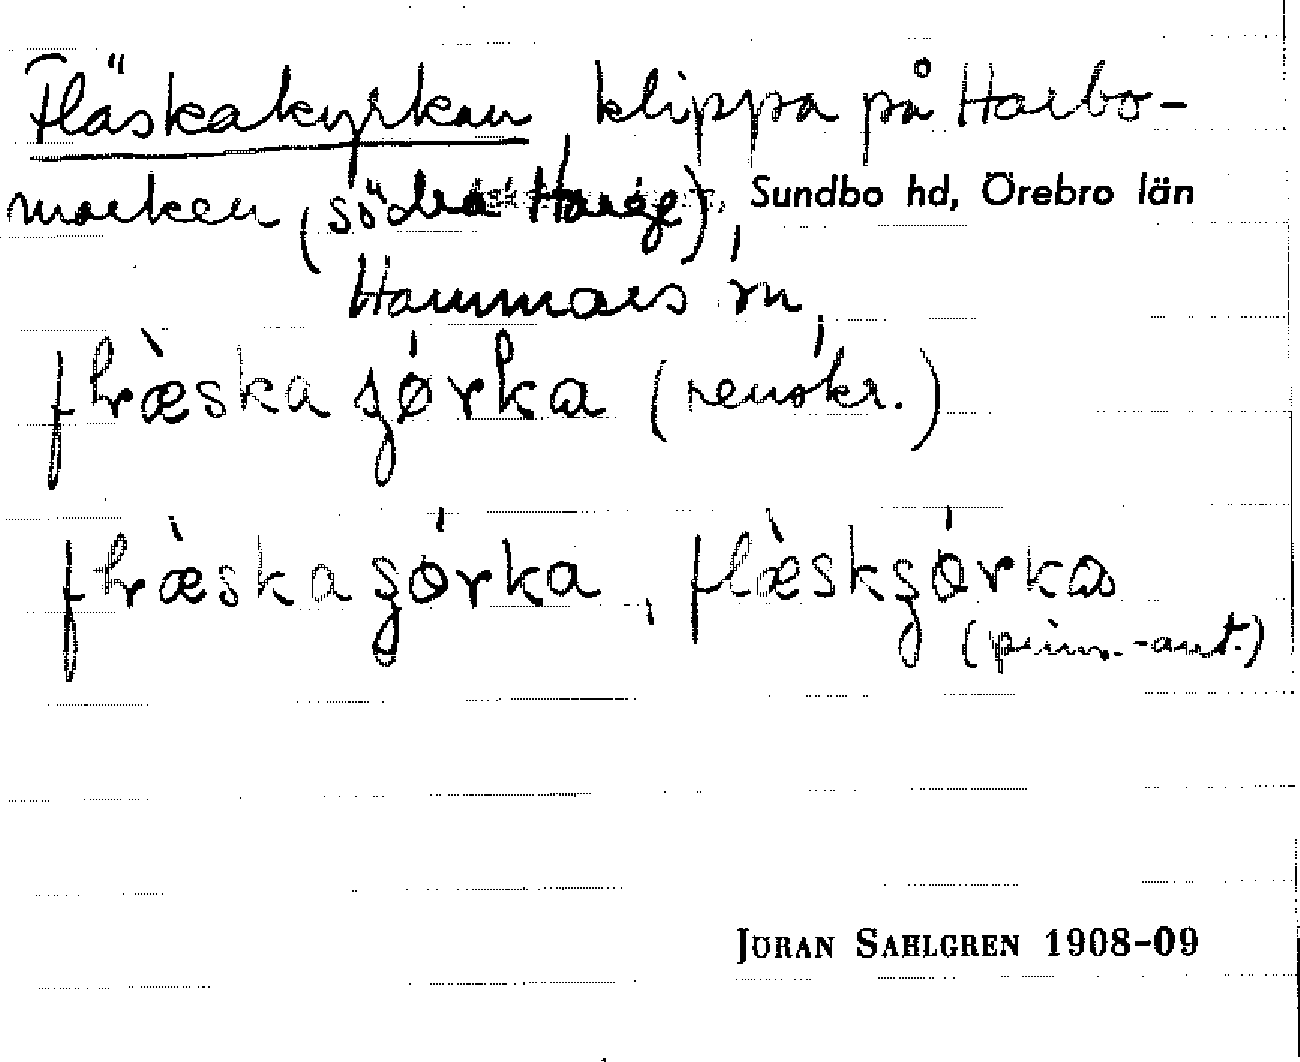 Fläskakyrkan, klippa på Harbo-
marken, (södra Harge), Sundbo hd, Örebro län
Hammars sn,
flræ̀ska ʂǿrka (renskr.)
flræ̀ska ʂǿrka, flæ̀skʂǿrka
(prim.-ant.)
JÖRAN SAHLGREN 1908-09